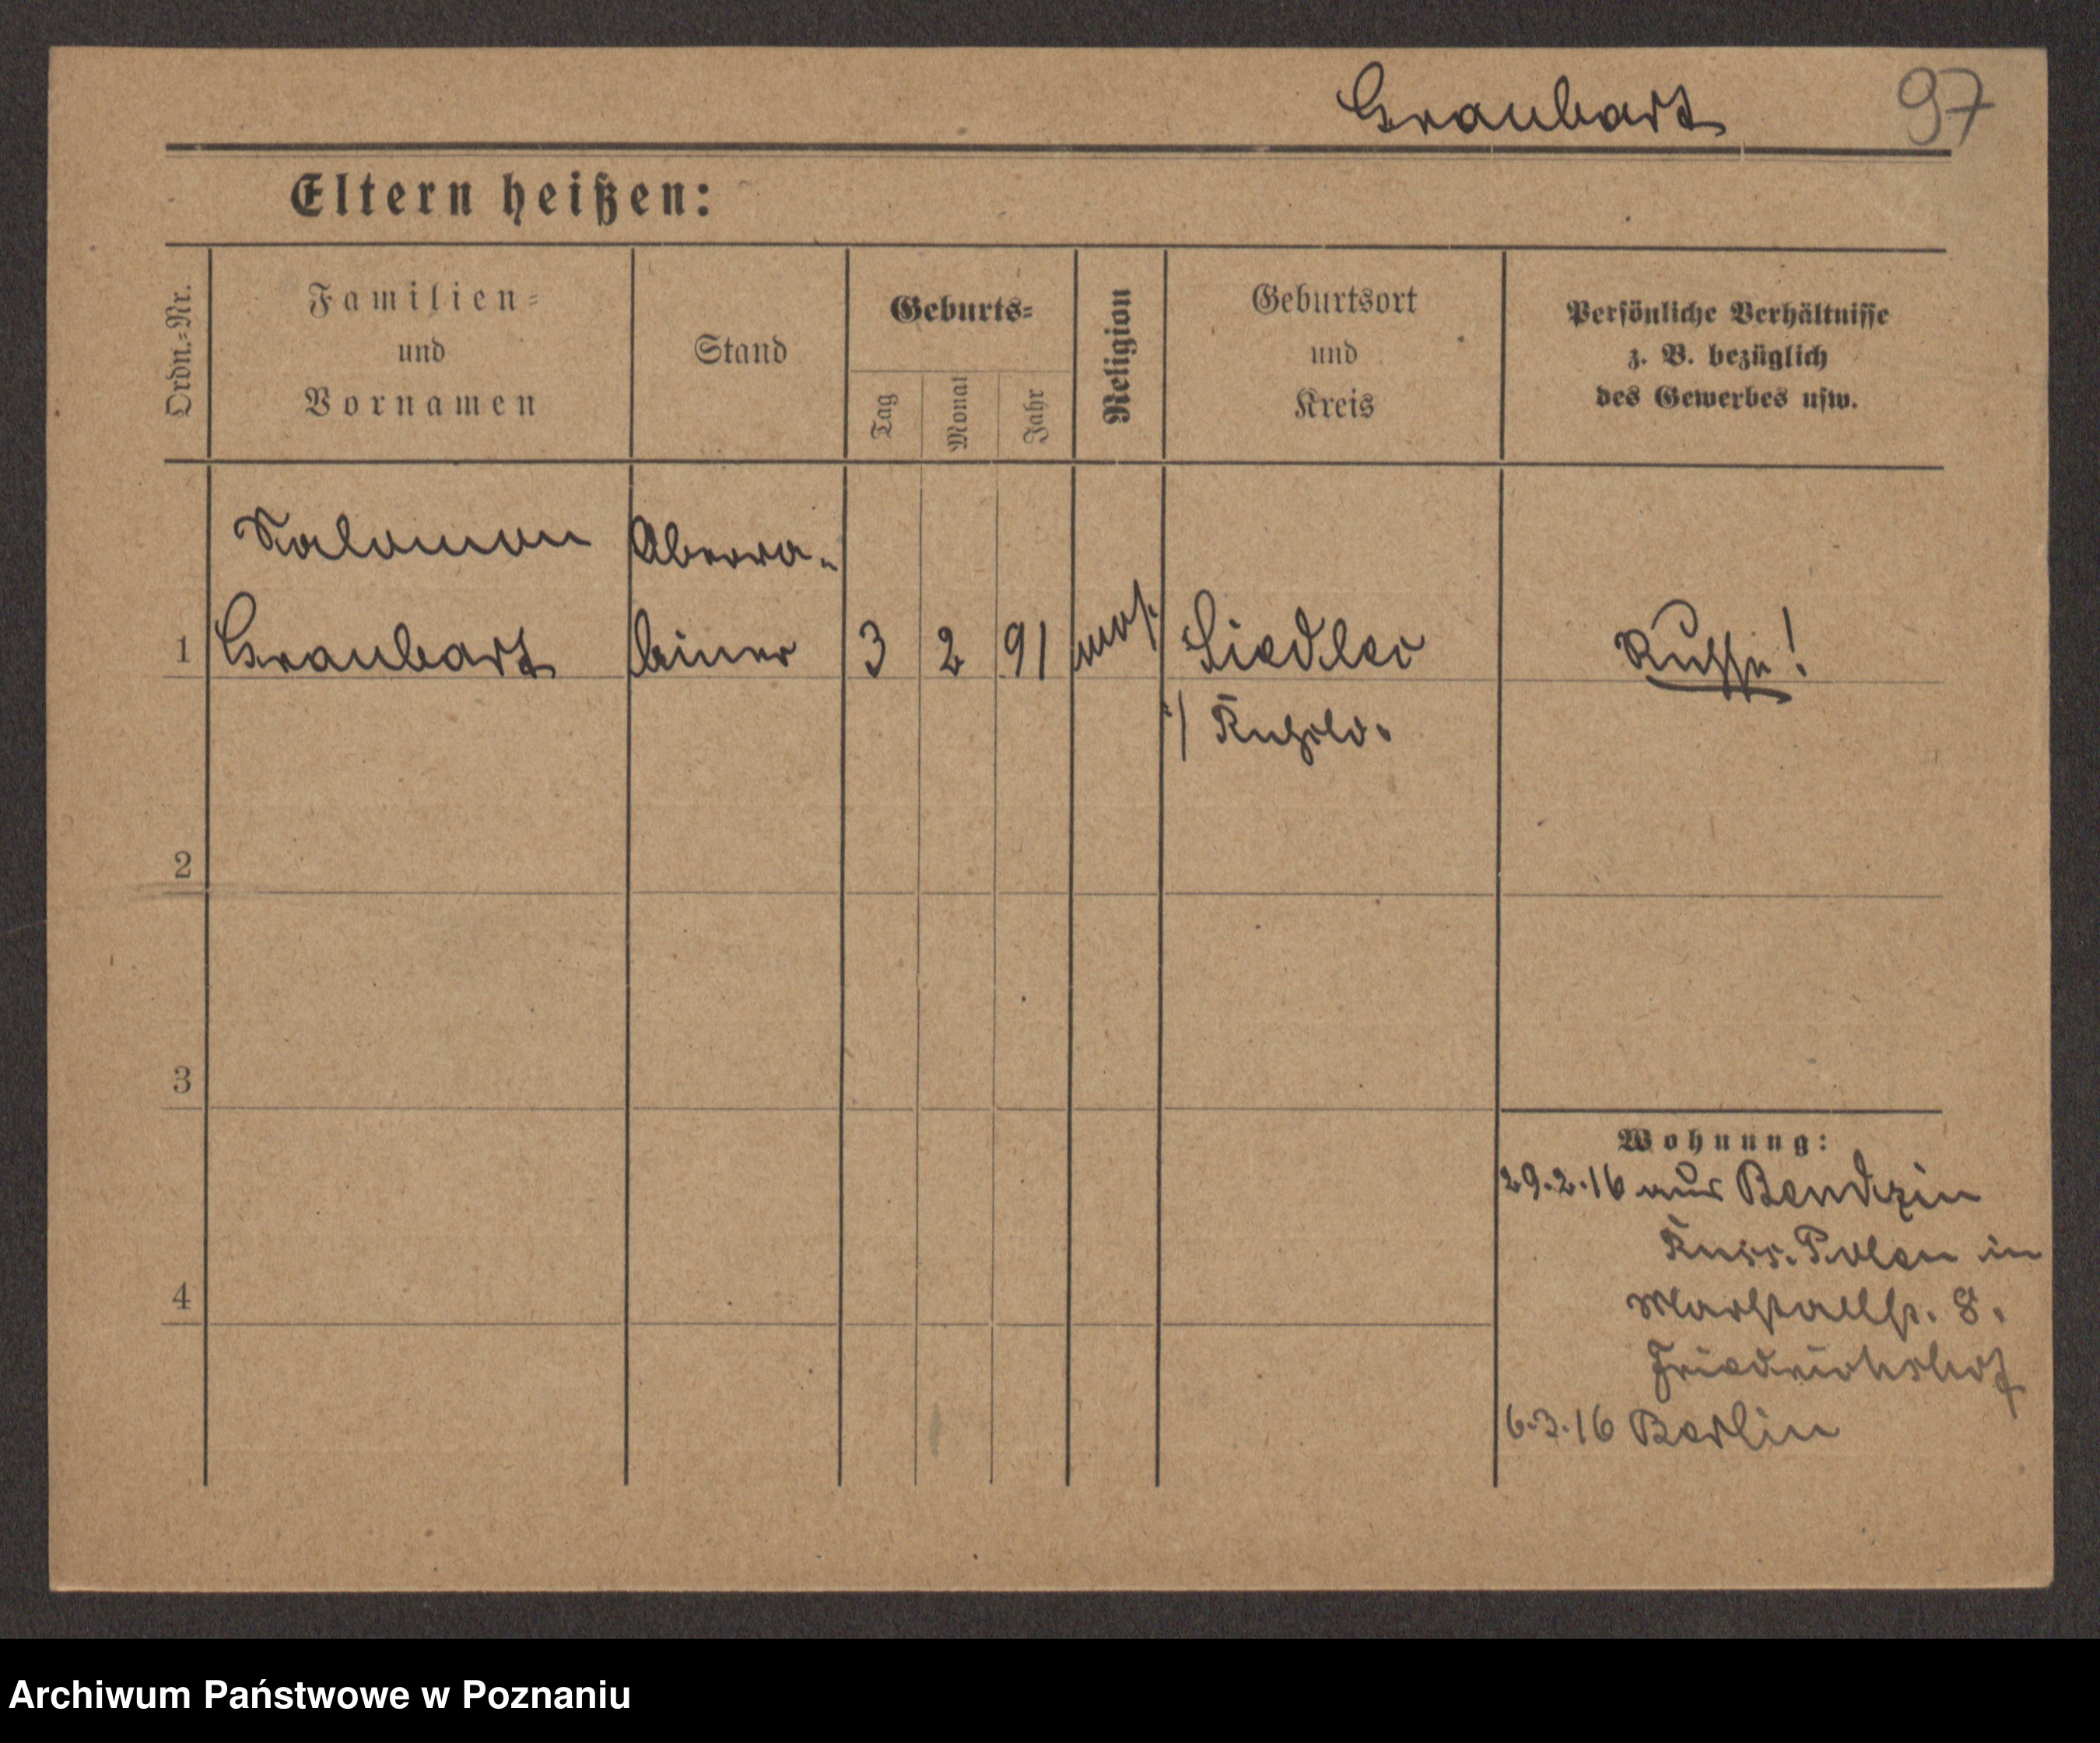 Graubart 97
Eltern heißen:
Ordn.-Nr.
Familien-
und
Vornamen
Stand
Geburts-
Tag
Monat
Jahr
Religion
Geburtsort
und
Kreis
Persönliche Verhältnisse
z. B. bezüglich
des Gewerbes usw.
Salomon
1 Graubart 3 2 91 mos. Russe!
2
3
4
Wohnung:
29.2.16 aus Bendzin
Russ. Polen in
Marstallstr. 8.
Friedrichshof
6.3.16 Berlin
Archiwum Państwowe w Poznaniu